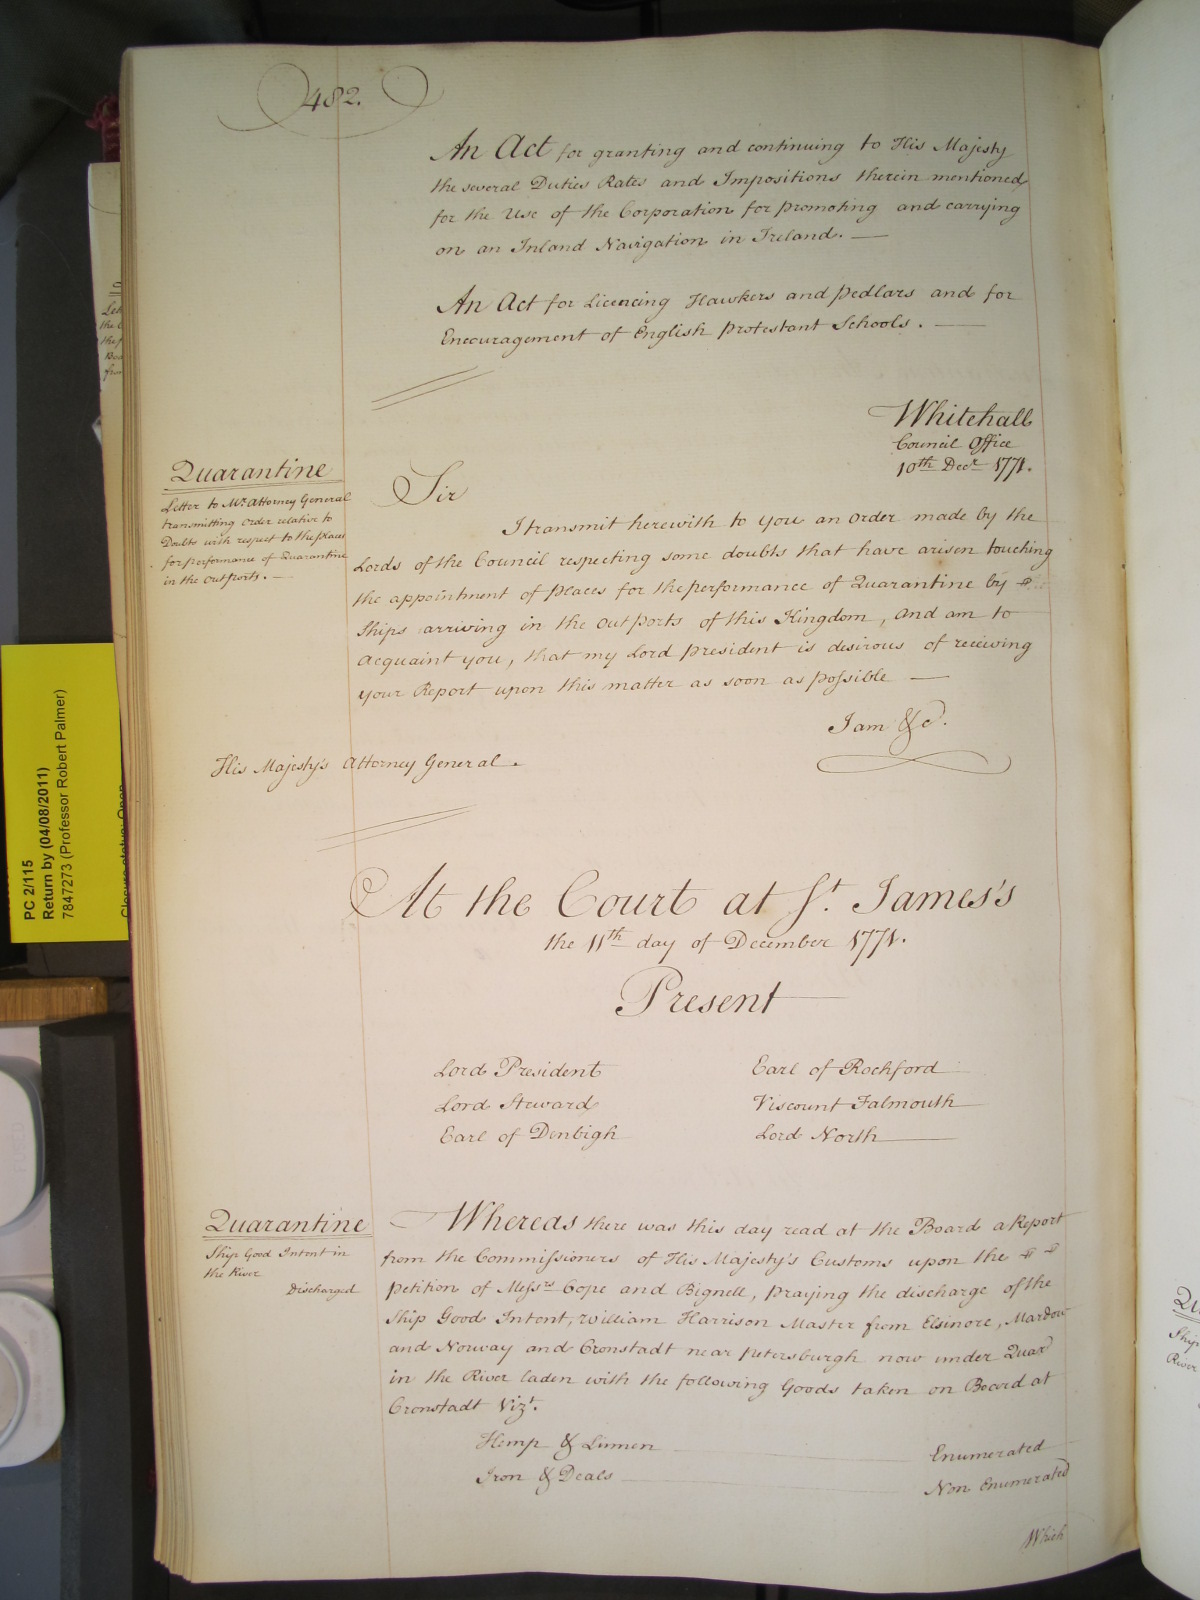 482.
An Act for granting and continuing to His Majesty
the several Duties Rates and Impositions therein mentioned
for the Use of the Corporation for promoting and carrying
on an Inland Navigation in Ireland. —
An Act for Licencing Hawkers and Pedlars and for
Encouragement of English Protestant Schools. —
Whitehall
Council Office
10th Decr 1771.
Quarantine
Letter to Mr. Attorney General
transmitting Order relative to
Doubts with respect to the places
for performance of Quarantine
in the outports. —
Sir
I transmit herewith to you an Order made by the
Lords of the Council respecting some doubts that have arisen touching
the appointment of places for the performance of Quarantine by
Ships arriving in the out ports of this Kingdom, and am to
acquaint you, that my Lord President is desirous of receiving
your Report upon this matter as soon as possible —
I am &c.
His Majesty's Attorney General.
At the Court at St. James's
the 11th day of December 1771.
Present
Lord President Earl of Rochford
Lord Steward Viscount Falmouth
Earl of Denbigh Lord North
Quarantine
Ship Good Intent in
the River
Discharged
Whereas there was this day read at the Board a Report
from the Commissioners of His Majesty's Customs upon the
petition of Messrs Cope and Bignell, praying the discharge of the
Ship Good Intent, William Harrison Master from Elsinore, Mardow
and Norway and Cronstadt near Petersburgh now under Quar
in the River laden with the following Goods taken on Board at
Cronstadt Vizt.
Hemp & Linnen — Enumerated
Iron & Deals — Non Enumerated
Which
PC 2/115
Return by (04/08/2011)
7847273 (Professor Robert Palmer)